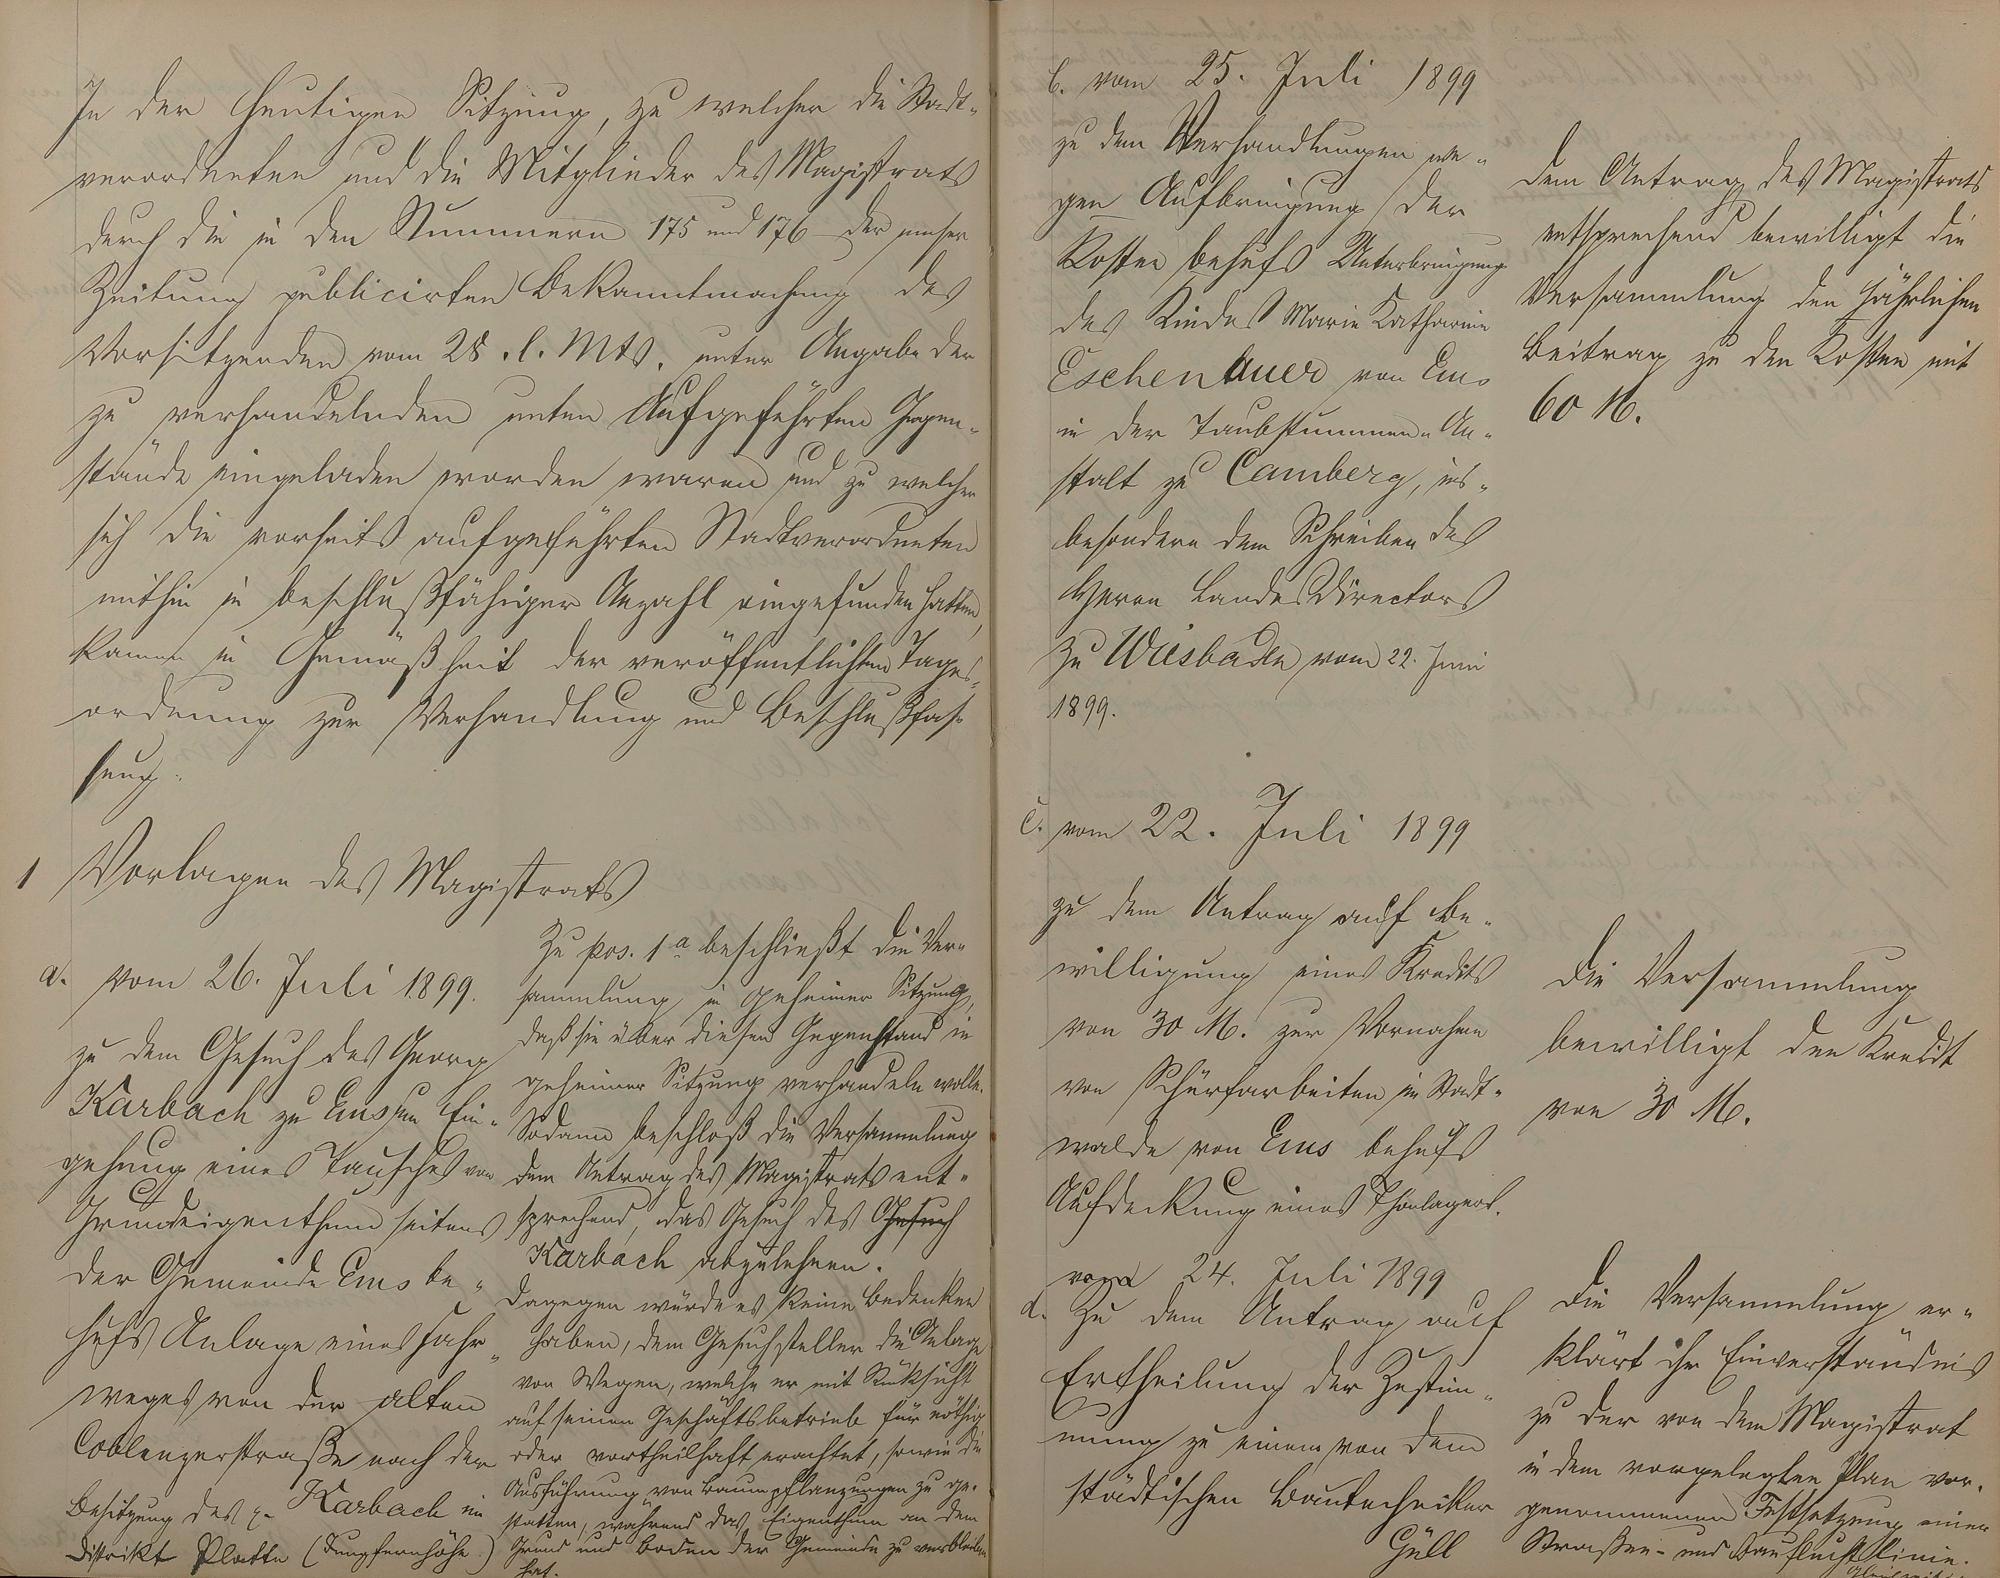 In der heutigen Sitzung, zu welcher die Stadt-
verordneten und die Mitglieder des Magistrats
durch die in den Nummern 175 und 176 der Emser
Zeitung publicirten Bekanntmachung des
Vorsitzenden vom 28. l. Mts. unter Angabe der
zu verhandelnden unten Aufgeführten Gegen-
stände eingeladen worden waren und zu welcher
sich die vorseits aufgeführten Stadtverordneten
mithin in beschlußfähiger Anzahl eingefunden hatten,
kamen in Gemäßheit der veröffentlichten Tages-
ordnung zur Verhandlung und Beschlußfas-
sung.
1 Vorlagen des Magistrats
a. vom 26. Juli 1899.
zu dem Gesuch des Georg
Karbach zu Ems um Ein-
gehung eines Tausches von
Grundeigenthum seitens
der Gemeinde Ems be-
hufs Anlage eines Fahr-
weges von der alten
Coblenzerstraße nach der
Besitzung des p. Karbach im
Distrikt Platte (Jungfernhöhe.)
Zu pos. 1a beschließt die Ver-
sammlung in geheimer Sitzung,
daß sie über diesen Gegenstand in
geheimer Sitzung verhandeln wolle.
Sodann beschloß die Versammlung
dem Antrag des Magistrats ent-
sprechend, das Gesuch des Gesuch
Karbach abzulehnen.
Dagegen würde es keine Bedenken
haben, dem Gesuchsteller die Anlage
von Wegen, welche er mit Rücksicht
auf seinen Geschäftsbetrieb für nöthig
oder vortheilhaft erachtet, sowie die
Ausführung von Baumpflanzungen zu ge-
statten, während das Eigenthum an dem
Grund und Boden der Gemeinde zu verbleiben
hat.
b. vom 25. Juli 1899
zu den Verhandlungen we-
gen Aufbringung der
Kosten behufs Unterbringung
des Kindes Marie Katharine
Eschenauer von Ems
in der Taubstummen-An-
stalt zu Camberg, ins-
besondere dem Schreiben des
Herrn Landesdirectors
zu Wiesbaden vom 22. Juni
1899.
Dem Antrag des Magistrats
entsprechend bewilligt die
Versammlung den jährlichen
Beitrag zu den Kosten mit
60 M.
c. vom 22. Juli 1899
zu dem Antrag auf Be-
willigung eines Kredits
von 30 M. zur Vornahme
von Schürfarbeiten im Stadt-
walde von Ems behufs
Aufdeckung eines Thonlagers.
Die Versammlung
bewilligt den Kredit
von 30 M.
vom 24. Juli 1899
d. Zu dem Antrag auf
Ertheilung der Zustim-
mung zu einem von dem
städtischen Bautechniker
Güll
Die Versammlung er-
klärt ihr Einverständnis
zu der von dem Magistrat
in dem vorgelegten Plan vor-
genommenen Festsetzung einer
Straßen- und Baufluchtlinie.